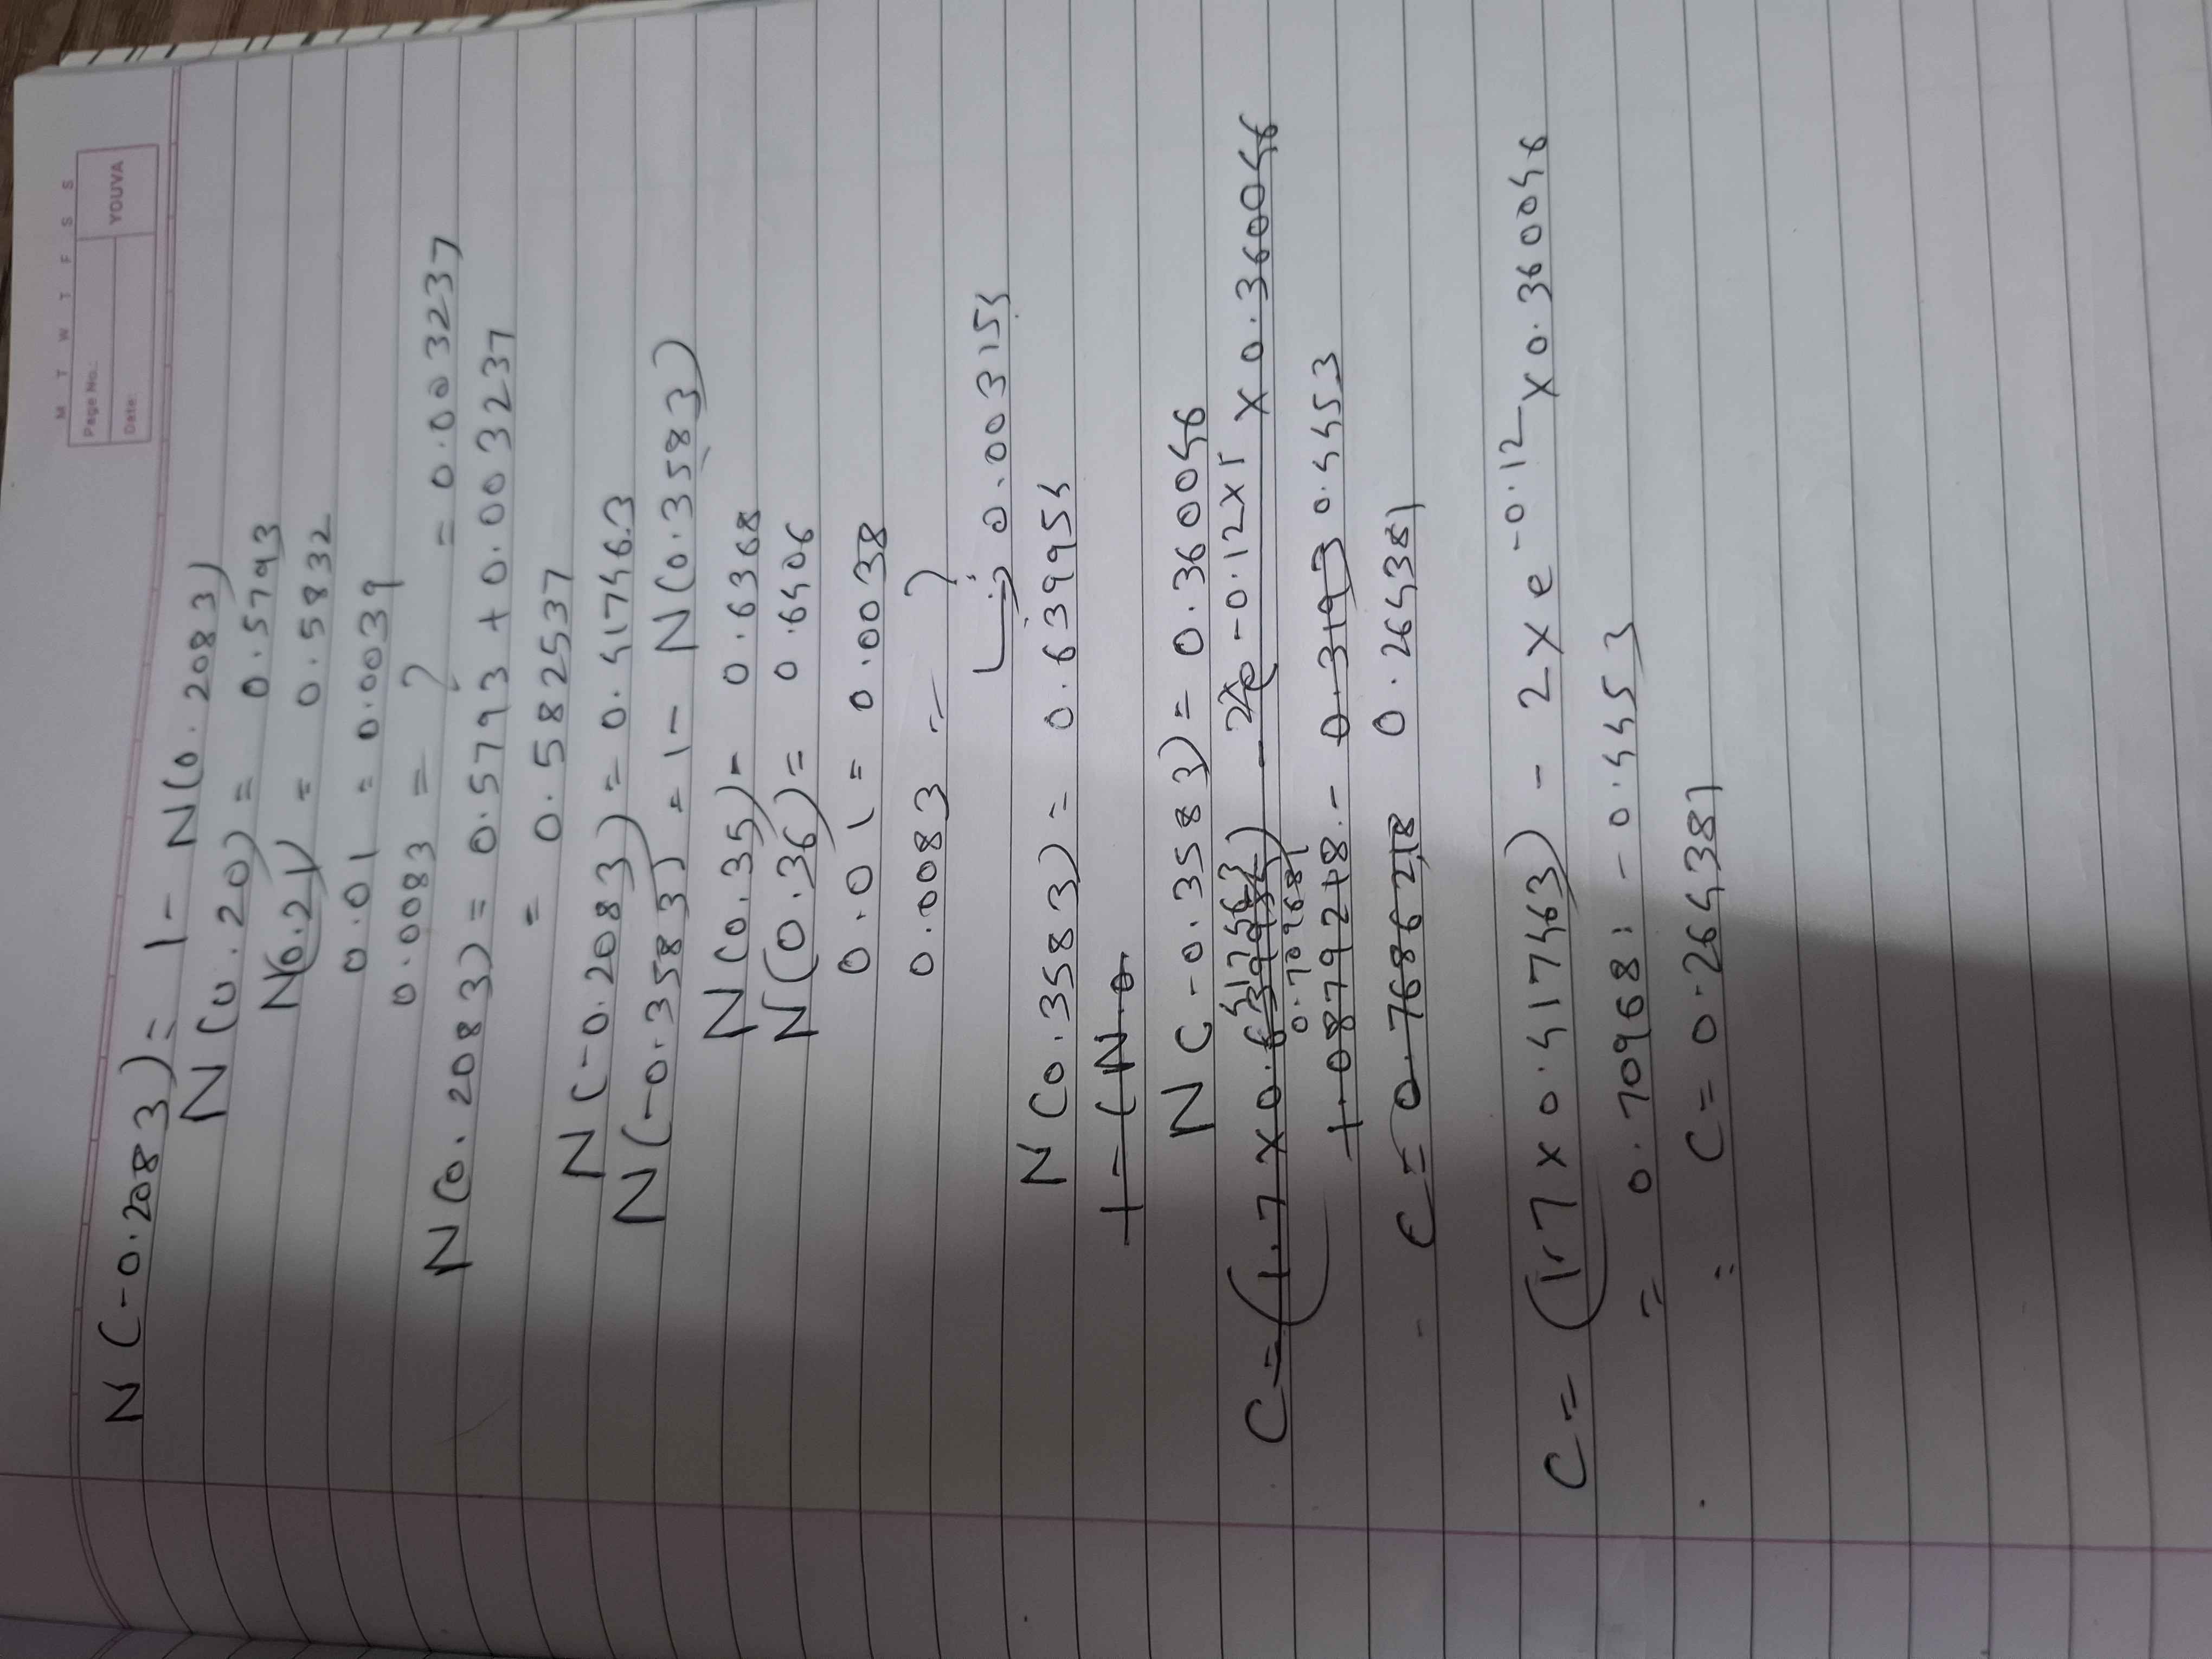 M T W T F S S
Page No.:
YOUVA
Date:
N(-0.2083) = 1 - N(0.2083)
N(0.20) = 0.5793
N(0.21) = 0.5832
0.01 = 0.0039
0.0083 = ?
= 0.003237
N(0.2083) = 0.5793 + 0.003237
= 0.582537
N(-0.2083) = 0.417463
N(-0.3583) = 1 - N(0.3583)
N(0.35) = 0.6368
N(0.36) = 0.6406
0.01 = 0.0038
0.0083 = ?
0.003154
N(0.3583) = 0.639954
1 - (N 0
N(-0.3583) = 0.360046
C = (1.7 × 0.417463) - 2×e -0.12×1 × 0.360046
0.709681
1.0879218 - 0.3193 0.4453
C = 0.7686218 0.264381
C = (1.7 × 0.417463) - 2 × e -0.12 × 0.360046
= 0.709681 - 0.4453
C = 0.264381